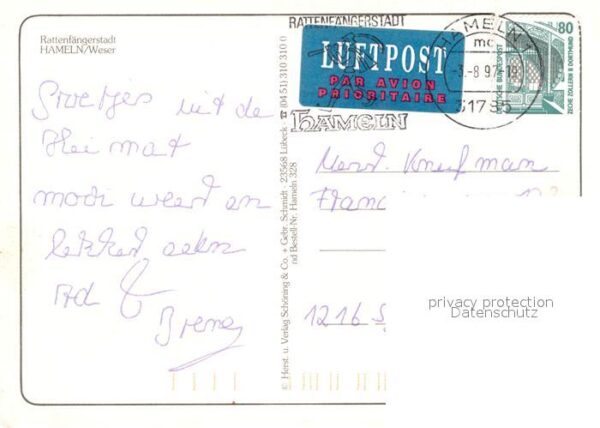 Rattenfängerstadt
HAMELN/Weser
Groetjes uit de
Heimat
mooi weer en
lekker eten
Ad &
© Herst. u. Verlag Schöning & Co. + Gebr. Schmidt · 23568 Lübeck · ☎ (04 51) 310 310 0
nd Bestell-Nr. Hameln 328
RATTENFÄNGERSTADT
HAMELN
LUFTPOST
PAR AVION
PRIORITAIRE
HAMELN
31785
80
DEUTSCHE BUNDESPOST
ZECHE ZOLLERN II DORTMUND
1216
privacy protection
Datenschutz